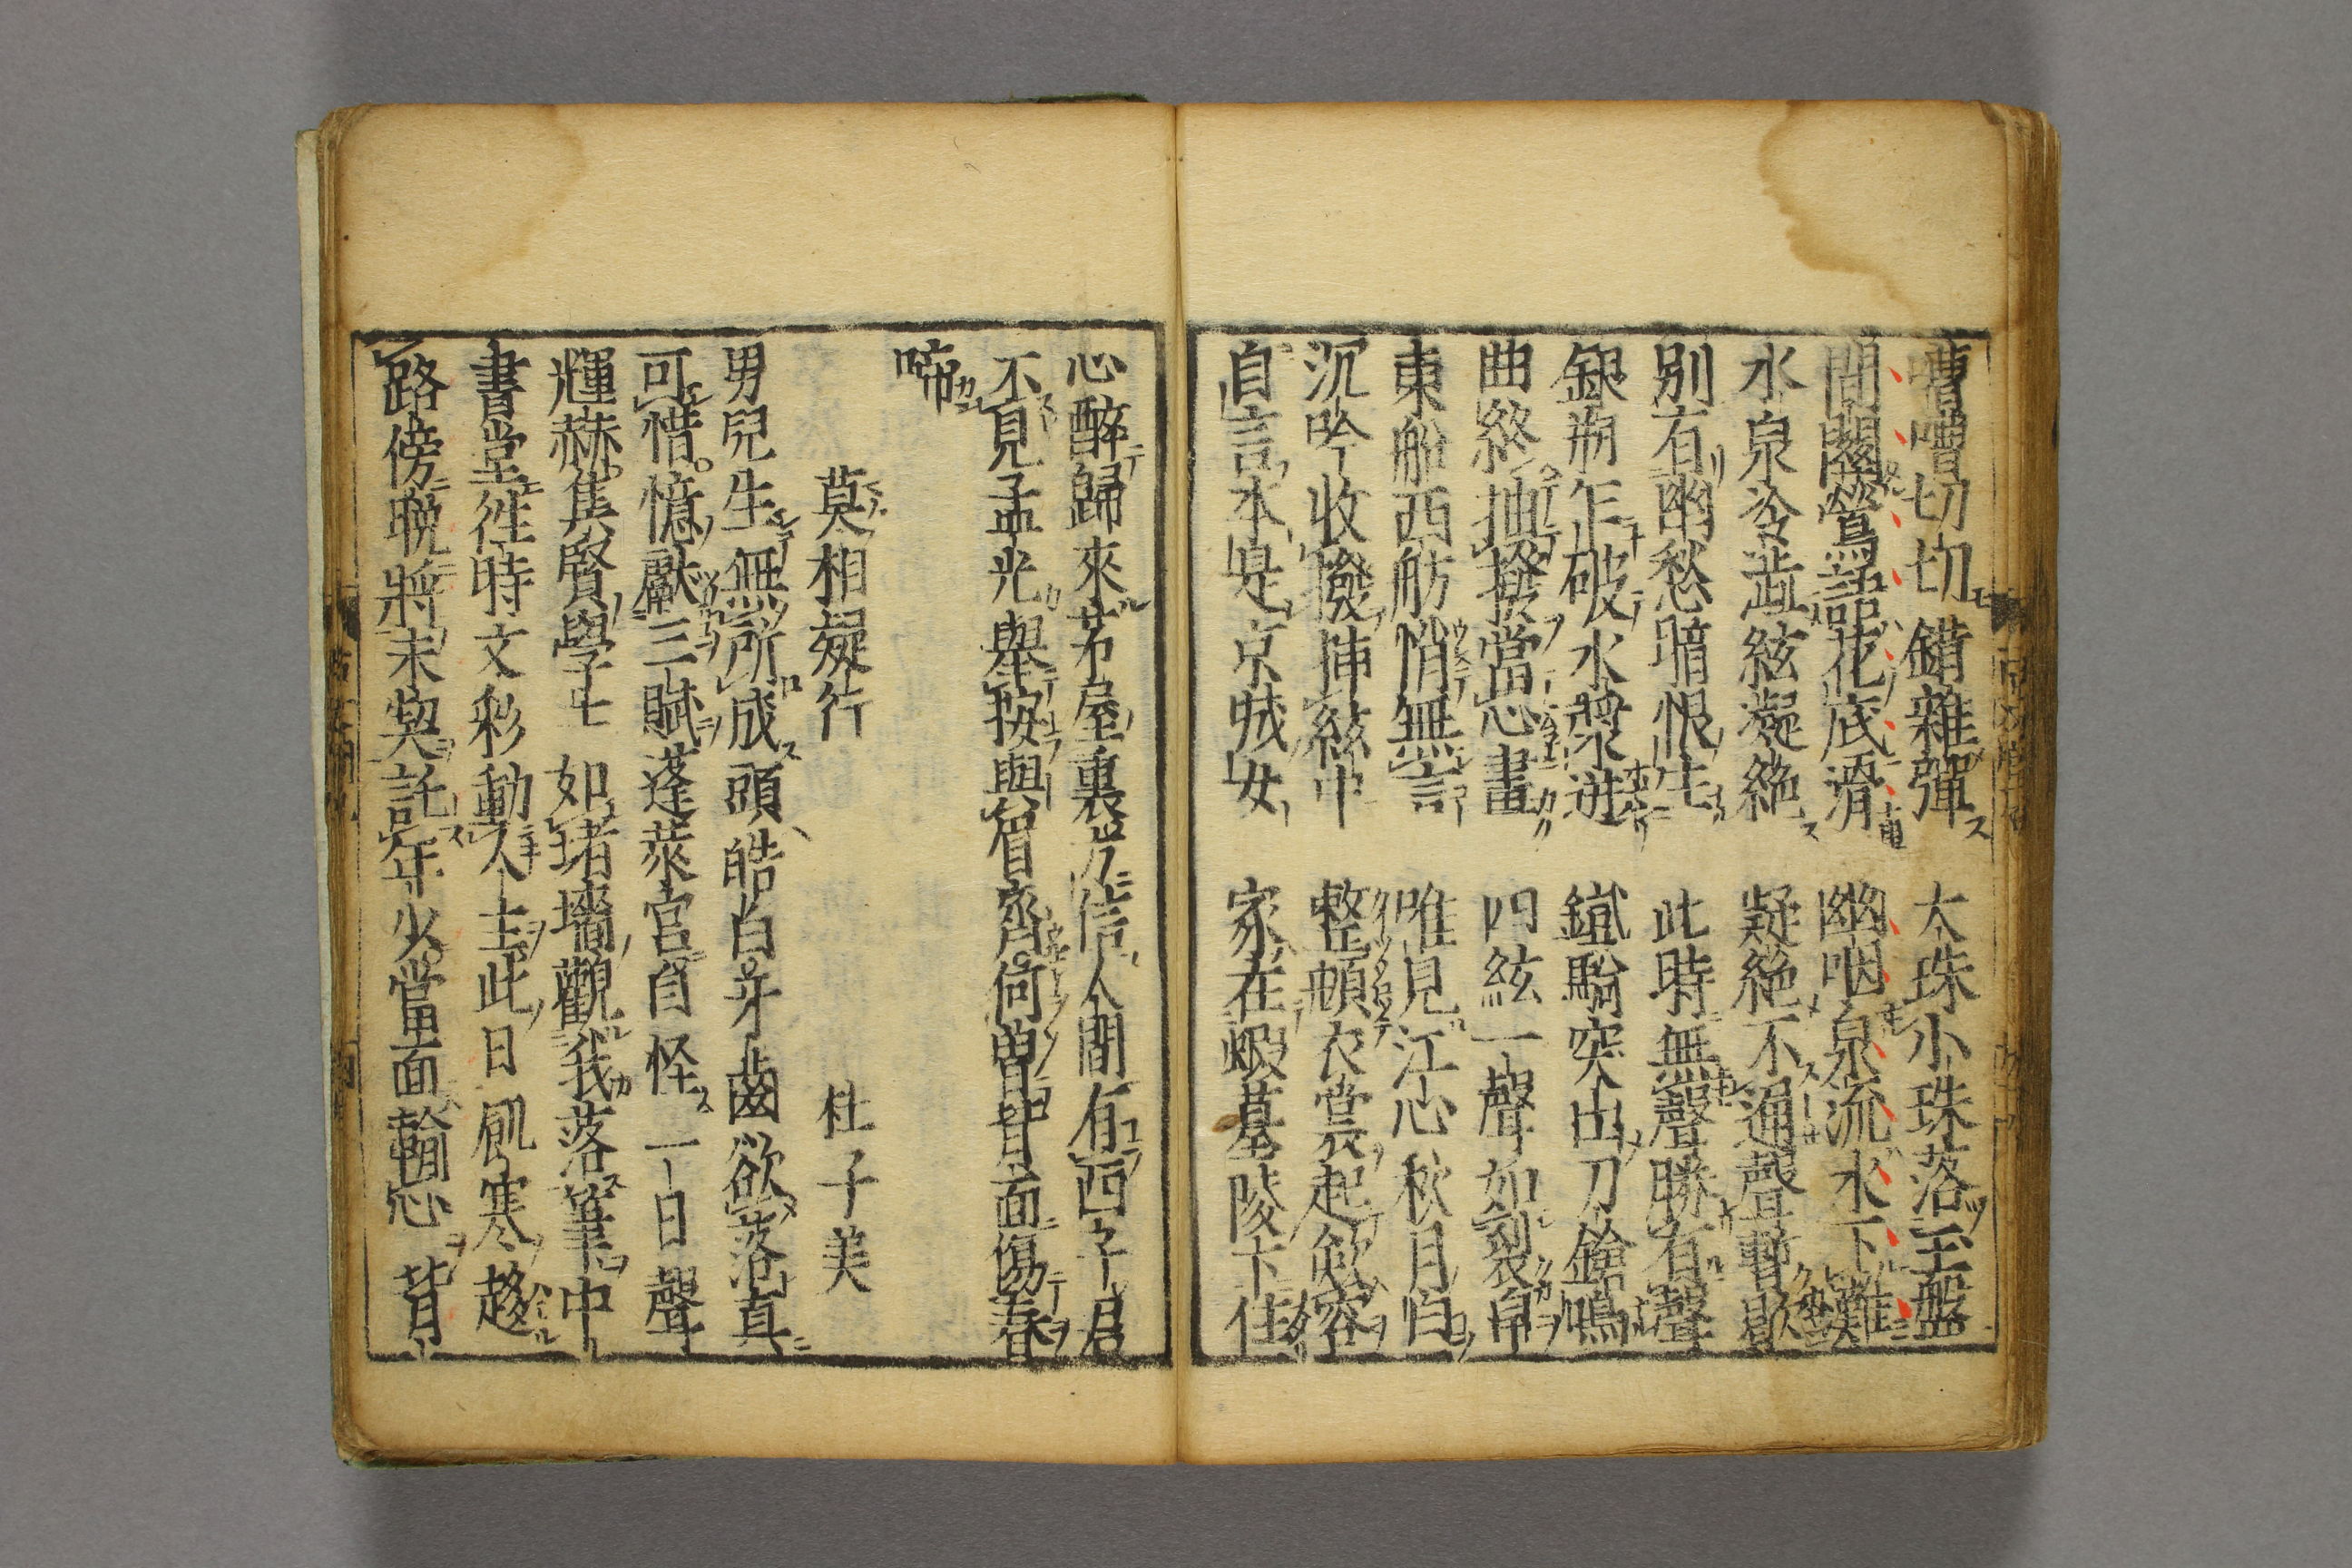 嘈嘈切切錯雜彈 大珠小珠落玉盤
間關鶯語花底滑 幽咽泉流水下灘
水泉冷澁絃凝絶 疑絶不通聲暫歇
別有幽愁暗恨生 此時無聲勝有聲
銀瓶乍破水漿迸 鐵騎突出刀鎗鳴
曲終抽撥當心畫 四絃一聲如裂帛
東船西舫悄無言 唯見江心秋月白
沉吟收撥揷絃中 整頓衣裳起斂容
自言本是京城女 家在蝦蟇陵下住
心醉歸來茅屋裏方信人間有西子君
不見孟光舉按與眉齊何曽背面傷春
啼
莫相疑行 杜子美
男兒生無所成頭皓白牙齒欲落真
可惜憶獻三賦蓬萊宮自怪一日聲
輝赫集賢學士如堵墻觀我落筆中
書堂徃時文彩動人主此日飢寒趍
路傍晩將末契託年少當面輸心背